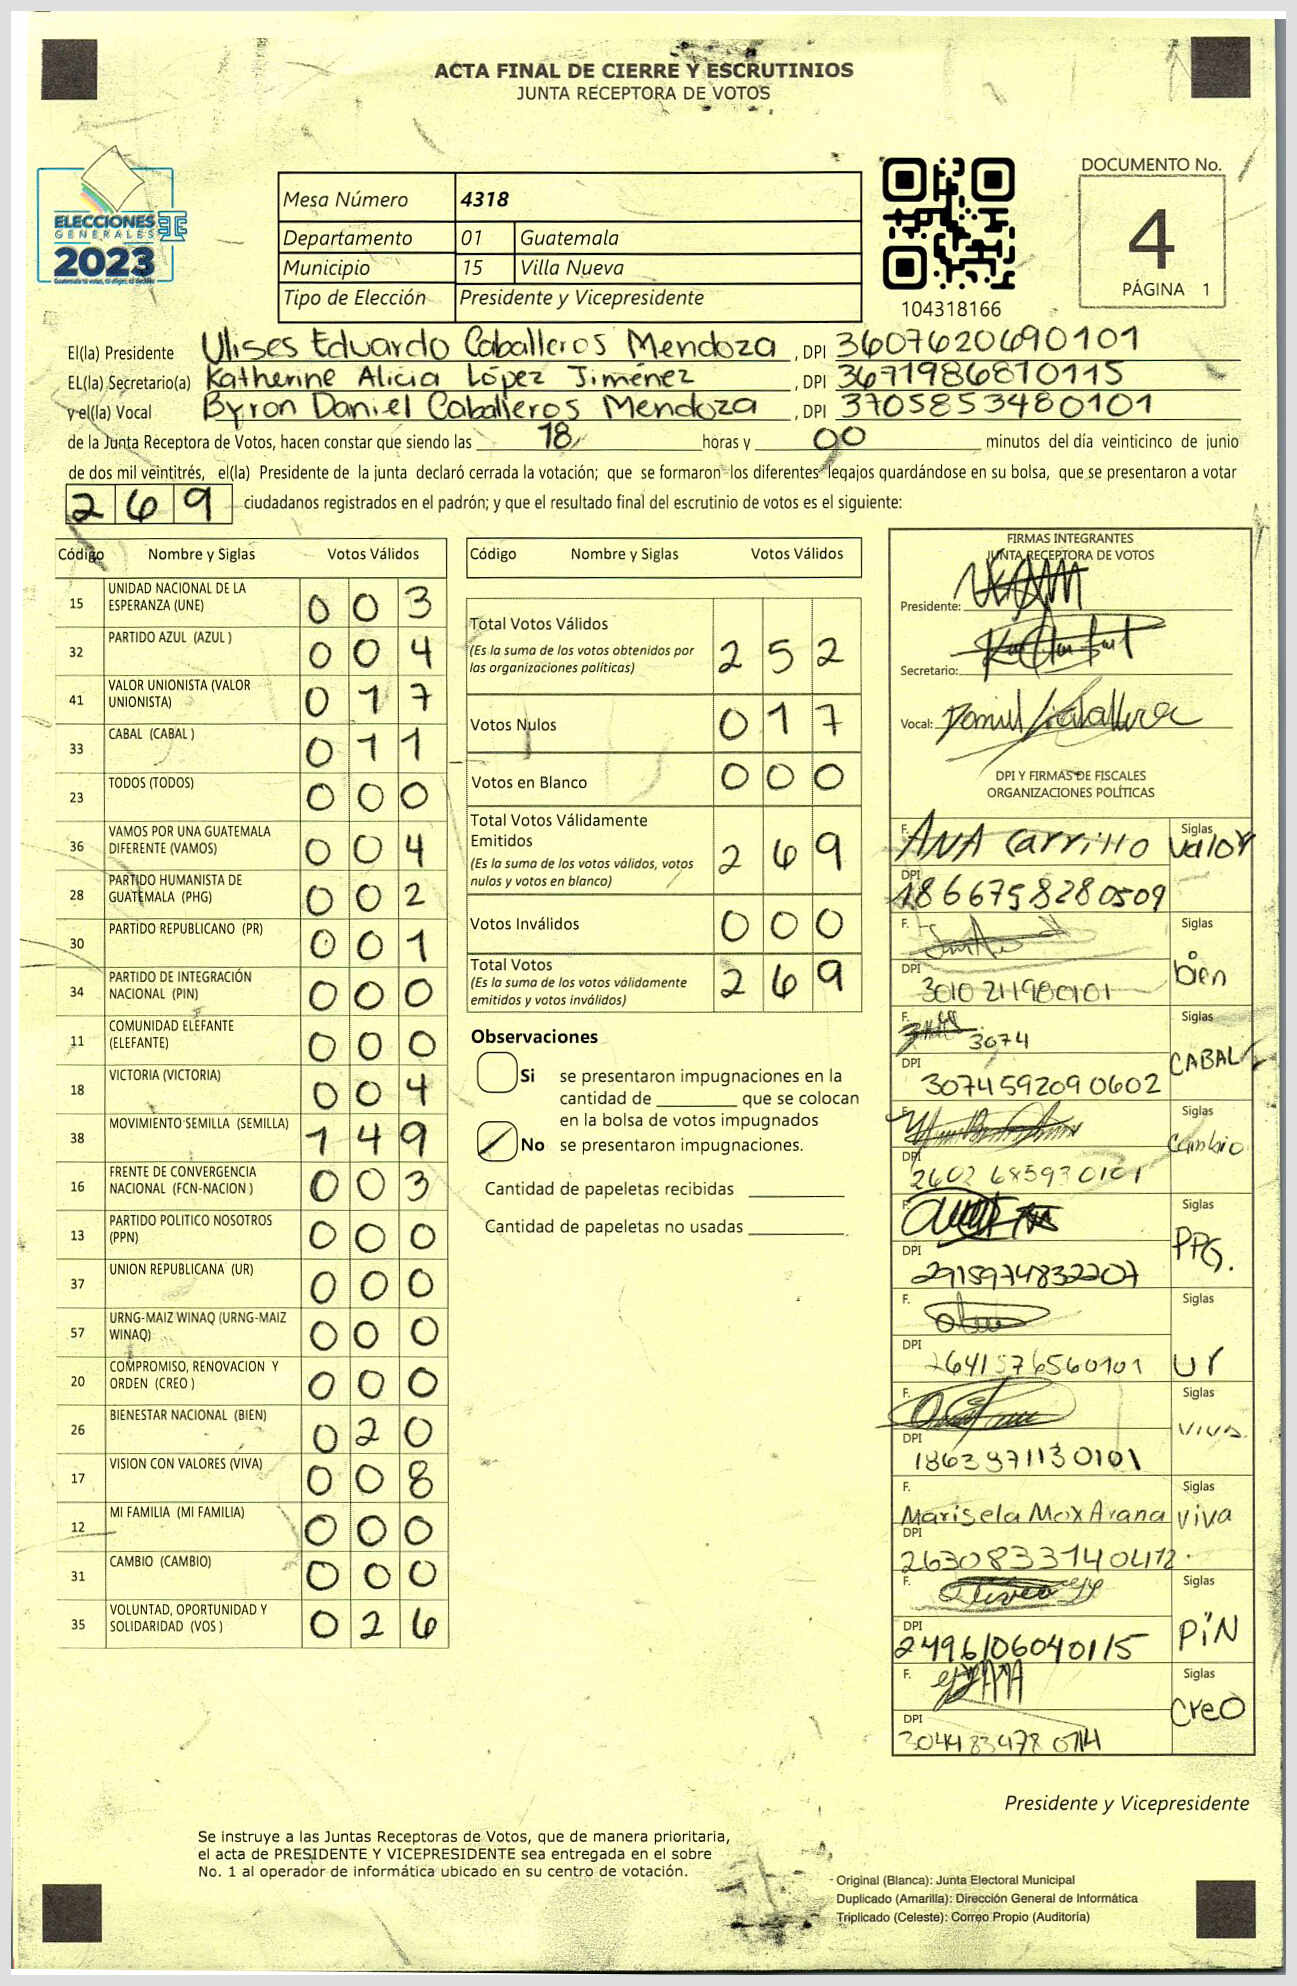 ACTA FINAL DE CIERRE Y ESCRUTINIOS
JUNTA RECEPTORA DE VOTOS
ELECCIONES
GENERALES
2023
Mesa Número 4318
Departamento 01 Guatemala
Municipio 15 Villa Nueva
Tipo de Elección Presidente y Vicepresidente
104318166
DOCUMENTO No.
4
PÁGINA 1
El(la) Presidente Ulises Eduardo Caballeros Mendoza , DPI 3607620690101
EL(la) Secretario(a) Katherine Alicia López Jiménez , DPI 3671986810115
y el(la) Vocal Byron Daniel Caballeros Mendoza , DPI 3705853480101
de la Junta Receptora de Votos, hacen constar que siendo las 18 horas y 00 minutos del día veinticinco de junio
de dos mil veintitrés, el(la) Presidente de la junta declaró cerrada la votación; que se formaron los diferentes legajos quardándose en su bolsa, que se presentaron a votar
269 ciudadanos registrados en el padrón; y que el resultado final del escrutinio de votos es el siguiente:
Código Nombre y Siglas Votos Válidos
15 UNIDAD NACIONAL DE LA ESPERANZA (UNE) 003
32 PARTIDO AZUL (AZUL ) 004
41 VALOR UNIONISTA (VALOR UNIONISTA) 017
33 CABAL (CABAL ) 011
23 TODOS (TODOS) 000
36 VAMOS POR UNA GUATEMALA DIFERENTE (VAMOS) 004
28 PARTIDO HUMANISTA DE GUATEMALA (PHG) 002
30 PARTIDO REPUBLICANO (PR) 001
34 PARTIDO DE INTEGRACIÓN NACIONAL (PIN) 000
11 COMUNIDAD ELEFANTE (ELEFANTE) 000
18 VICTORIA (VICTORIA) 004
38 MOVIMIENTO SEMILLA (SEMILLA) 149
16 FRENTE DE CONVERGENCIA NACIONAL (FCN-NACION ) 003
13 PARTIDO POLITICO NOSOTROS (PPN) 000
37 UNION REPUBLICANA (UR) 000
57 URNG-MAIZ WINAQ (URNG-MAIZ WINAQ) 000
20 COMPROMISO, RENOVACION Y ORDEN (CREO ) 000
26 BIENESTAR NACIONAL (BIEN) 020
17 VISION CON VALORES (VIVA) 008
12 MI FAMILIA (MI FAMILIA) 000
31 CAMBIO (CAMBIO) 000
35 VOLUNTAD, OPORTUNIDAD Y SOLIDARIDAD (VOS ) 026
Código Nombre y Siglas Votos Válidos
Total Votos Válidos 252
(Es la suma de los votos obtenidos por las organizaciones políticas)
Votos Nulos 017
Votos en Blanco 000
Total Votos Válidamente Emitidos 269
(Es la suma de los votos válidos, votos nulos y votos en blanco)
Votos Inválidos 000
Total Votos 269
(Es la suma de los votos válidamente emitidos y votos inválidos)
Observaciones
Si se presentaron impugnaciones en la
cantidad de ________ que se colocan
en la bolsa de votos impugnados
No se presentaron impugnaciones.
Cantidad de papeletas recibidas
Cantidad de papeletas no usadas
FIRMAS INTEGRANTES
JUNTA RECEPTORA DE VOTOS
Presidente:
Secretario:
Vocal: Daniel Caballeros
DPI Y FIRMAS DE FISCALES
ORGANIZACIONES POLÍTICAS
F. ANA Carrillo Siglas Valor
DPI 1866758280509
F. Siglas bien
DPI 3010211980101
F. 3074 Siglas CABAL
DPI 3074592090602
F. Siglas Cambio
DPI 2602685930101
F. Siglas PPG.
DPI 2915974832207
F. Siglas Ur
DPI 2641576560101
F. Siglas VIVA
DPI 1863971130101
F. Marisela Mox Arana Siglas Viva
DPI 2630833140412
F. Siglas PiN
DPI 2496106040115
F. Siglas Creo
DPI 3044834780714
Presidente y Vicepresidente
Se instruye a las Juntas Receptoras de Votos, que de manera prioritaria,
el acta de PRESIDENTE Y VICEPRESIDENTE sea entregada en el sobre
No. 1 al operador de informática ubicado en su centro de votación.
Original (Blanca): Junta Electoral Municipal
Duplicado (Amarilla): Dirección General de Informática
Triplicado (Celeste): Correo Propio (Auditoría)